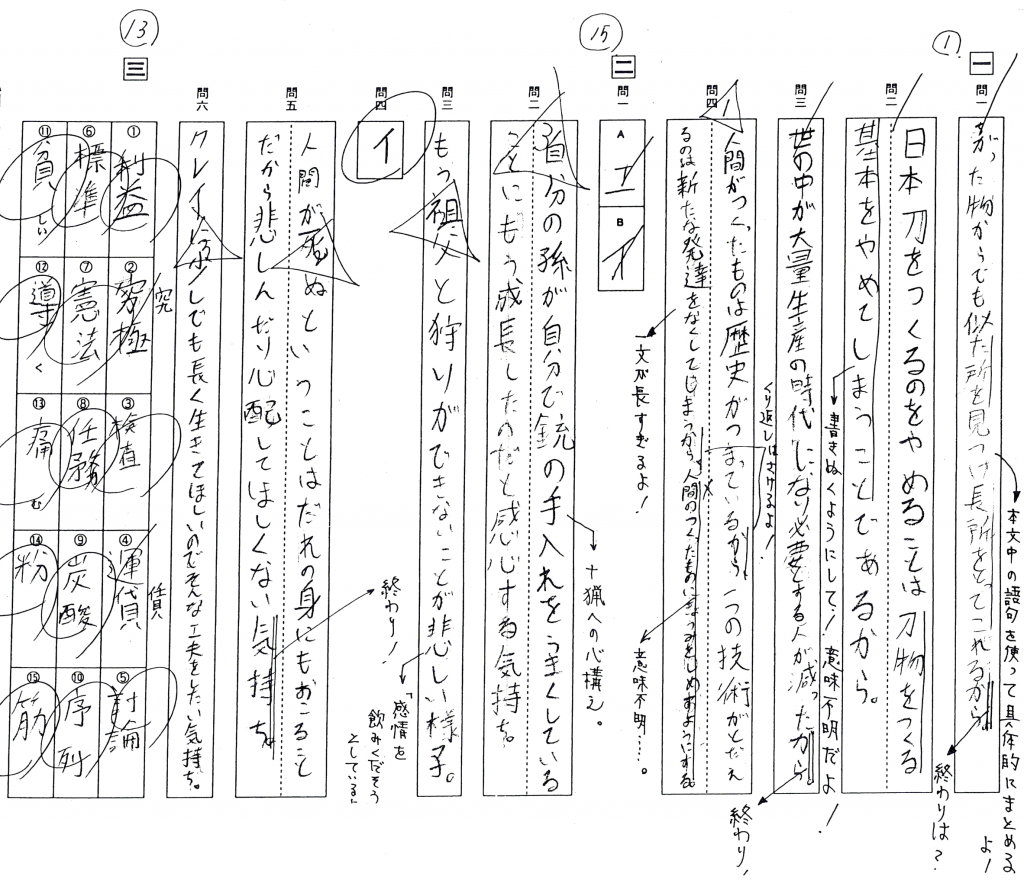 ①
一
問一
ちがった物からでも似た所を見つけ長所をとってこれるから。
本文中の語句を使って具体的にまとめる
よ！
終わりは？
問二
日本刀をつくるのをやめることは刀物をつくる
基本をやめてしまうことであるから。
書きぬくようにして！意味不明だよ！
問三
世の中が大量生産の時代になり必要とする人が減ったから。
終わり！
問四
人間がつくったものは歴史がつまっているから、一つの技術がとだえ
るのは新たな発達をなくしてしまうから、人間のつくったものに
くり返しはさけるよ！
意味不明…。
一文が長すぎるよ！
⑮
二
問一
A
ア
B
イ
問二
自分の孫が自分で銃の手入れをうまくしている
ことにもう成長したのだと感心する気持ち。
＋猟への心構え。
問三
もう祖父と狩りができないことが悲しい様子。
「感情を
飲みくだそう
としている」
問四
イ
問五
人間が死ぬということはだれの身にもおこること
だから悲しんだり心配してほしくない気持ち。
終わり！
問六
クレイに少しでも長く生きてほしいのでそんな工夫をしたい気持ち。
⑬
三
① 利益
② 究極
究
③ 検査
④ 運賃
賃
⑤ 討論
⑥ 標準
⑦ 憲法
⑧ 任務
⑨ 炭酸
⑩ 序列
⑪ 貧しい
⑫ 導く
⑬ 痛む
⑭ 粉
⑮ 筋